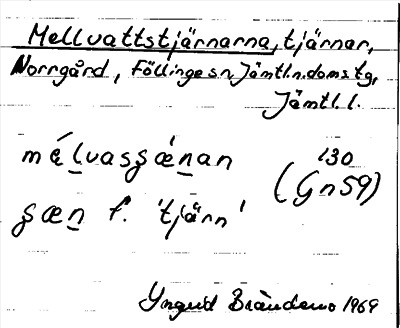 Mellvattstjärnarna, tjärnar,
Norrgård, Föllinge sn Jämtl.n.doms.tg,
Jämtl. l.
mélvasşǽnan 130
(Gn59)
şæn f. 'tjärn'
Yngvid Brändemo 1969